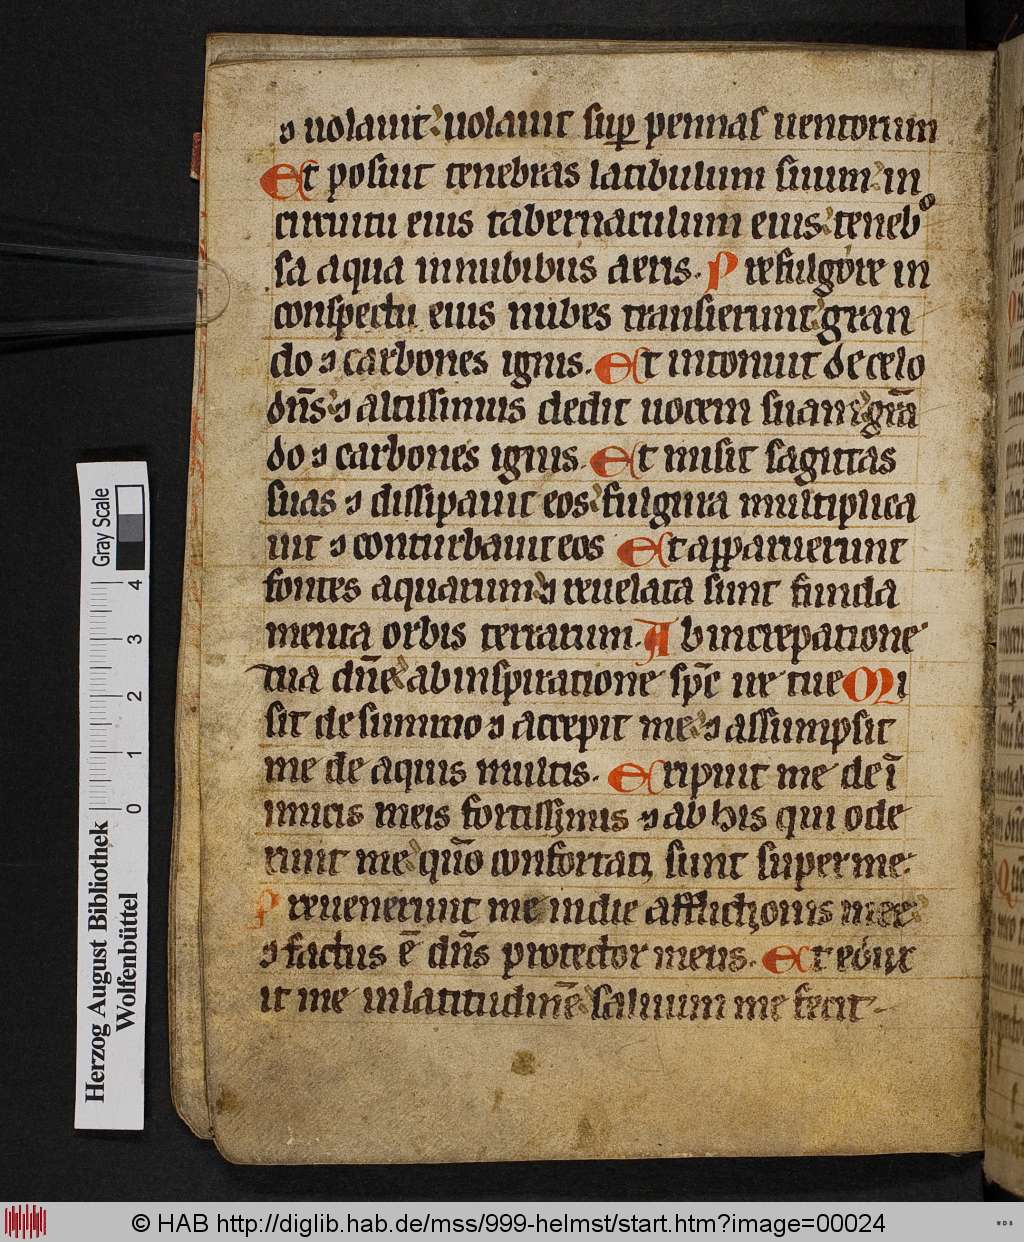 ⁊ uolauit uolauit sup̲ pennas uentorum
Et posuit tenebras latibulum suum in
circuitu eius tabernaculum eius teneb
sa aqua innubibus aeris. Prefulgore in
conspectu eius nubes transierunt gran
do ⁊ carbones ignis. Et intonuit de celo
dn̄s ⁊ altissimus dedit uocem suam grā
do ⁊ carbones ignis. Et misit sagittas
suas ⁊ dissipauit eos fulgura multiplica
uit ⁊ conturbauit eos Et apparuerunt
fontes aquarum ⁊ reuelata sunt funda
menta orbis terrarum. Ab increpatione
tua dn̄e ab inspiratione sp̄c ire tue Mi
sit de summo ⁊ accepit me ⁊ assumpsit
me de aquis multis. Eripuit me de ī
imicis meis fortissimis ⁊ ab his qui ode
runt me qūo confortati sunt super me.
Preuenerunt me indie afflictionis mee
⁊ factus ē dn̄s protector meus. Et edux
it me inlatitudinē saluum me fecit
Gray Scale
4
3
2
1
0
Herzog August Bibliothek
Wolfenbüttel
© HAB http://diglib.hab.de/mss/999-helmst/start.htm?image=00024